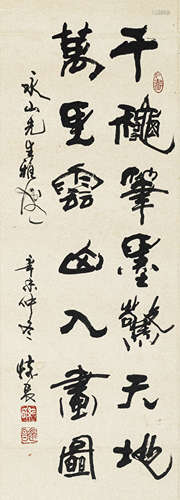 千穐筆墨驚天地
萬里雲山入畫圖
永山先生雅
辛未仲冬